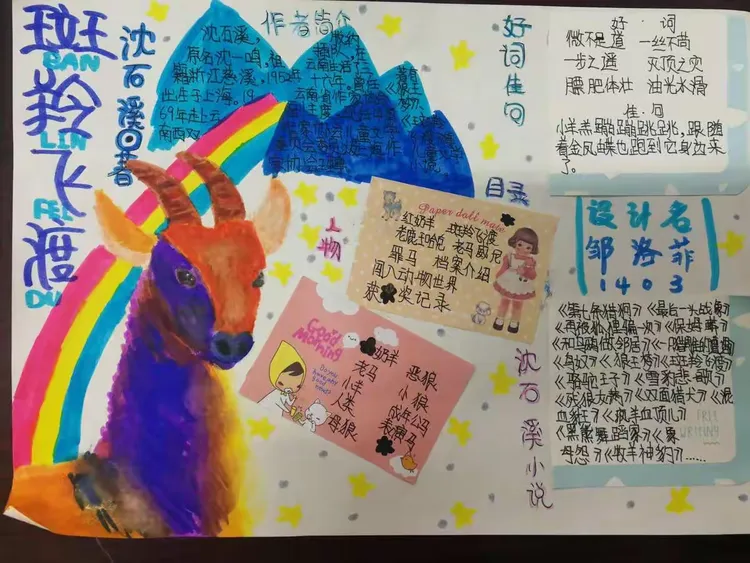 斑羚飞渡
BAN
LIN
FEI
DU
沈石溪⊙著
作者简介
沈石溪,
原名沈一鸣,祖
籍浙江慈溪。1952年
出生于上海。19
69年赴云
南西双
好词佳句
好·词
微不足道 一丝不苟
一步之遥 灭顶之灾
膘肥体壮 油光水滑
佳·句
小羊羔蹦蹦跳跳,跟随
着金凤蝶也跑到它身边来
了。
目录
Paper doll mate
红奶羊 斑羚飞渡
老鹿王哈克 老马威尼
罪马 档案介绍
闯入动物世界
获奖记录
人物
Good Morning
奶羊 恶狼
老马 小狼
小羊 成年公马
人类 表演马
母狼
设计名
邹洛菲
1403
沈石溪小说
《第七条猎狗》《最后一头战象》
《再被狐狸骗一次》《保姆蟒》
《和乌鸦做邻居》《一只猎雕的遭遇》
《鸟奴》《狼王梦》《斑羚飞渡》
《骆驼王子》《雪豹悲歌》
《残狼灰满》《双面猎犬》《混
血豺王》《疯羊血顶儿》
《黑熊舞蹈家》《象
母怨》《牧羊神豹》……
FREE
WRITING